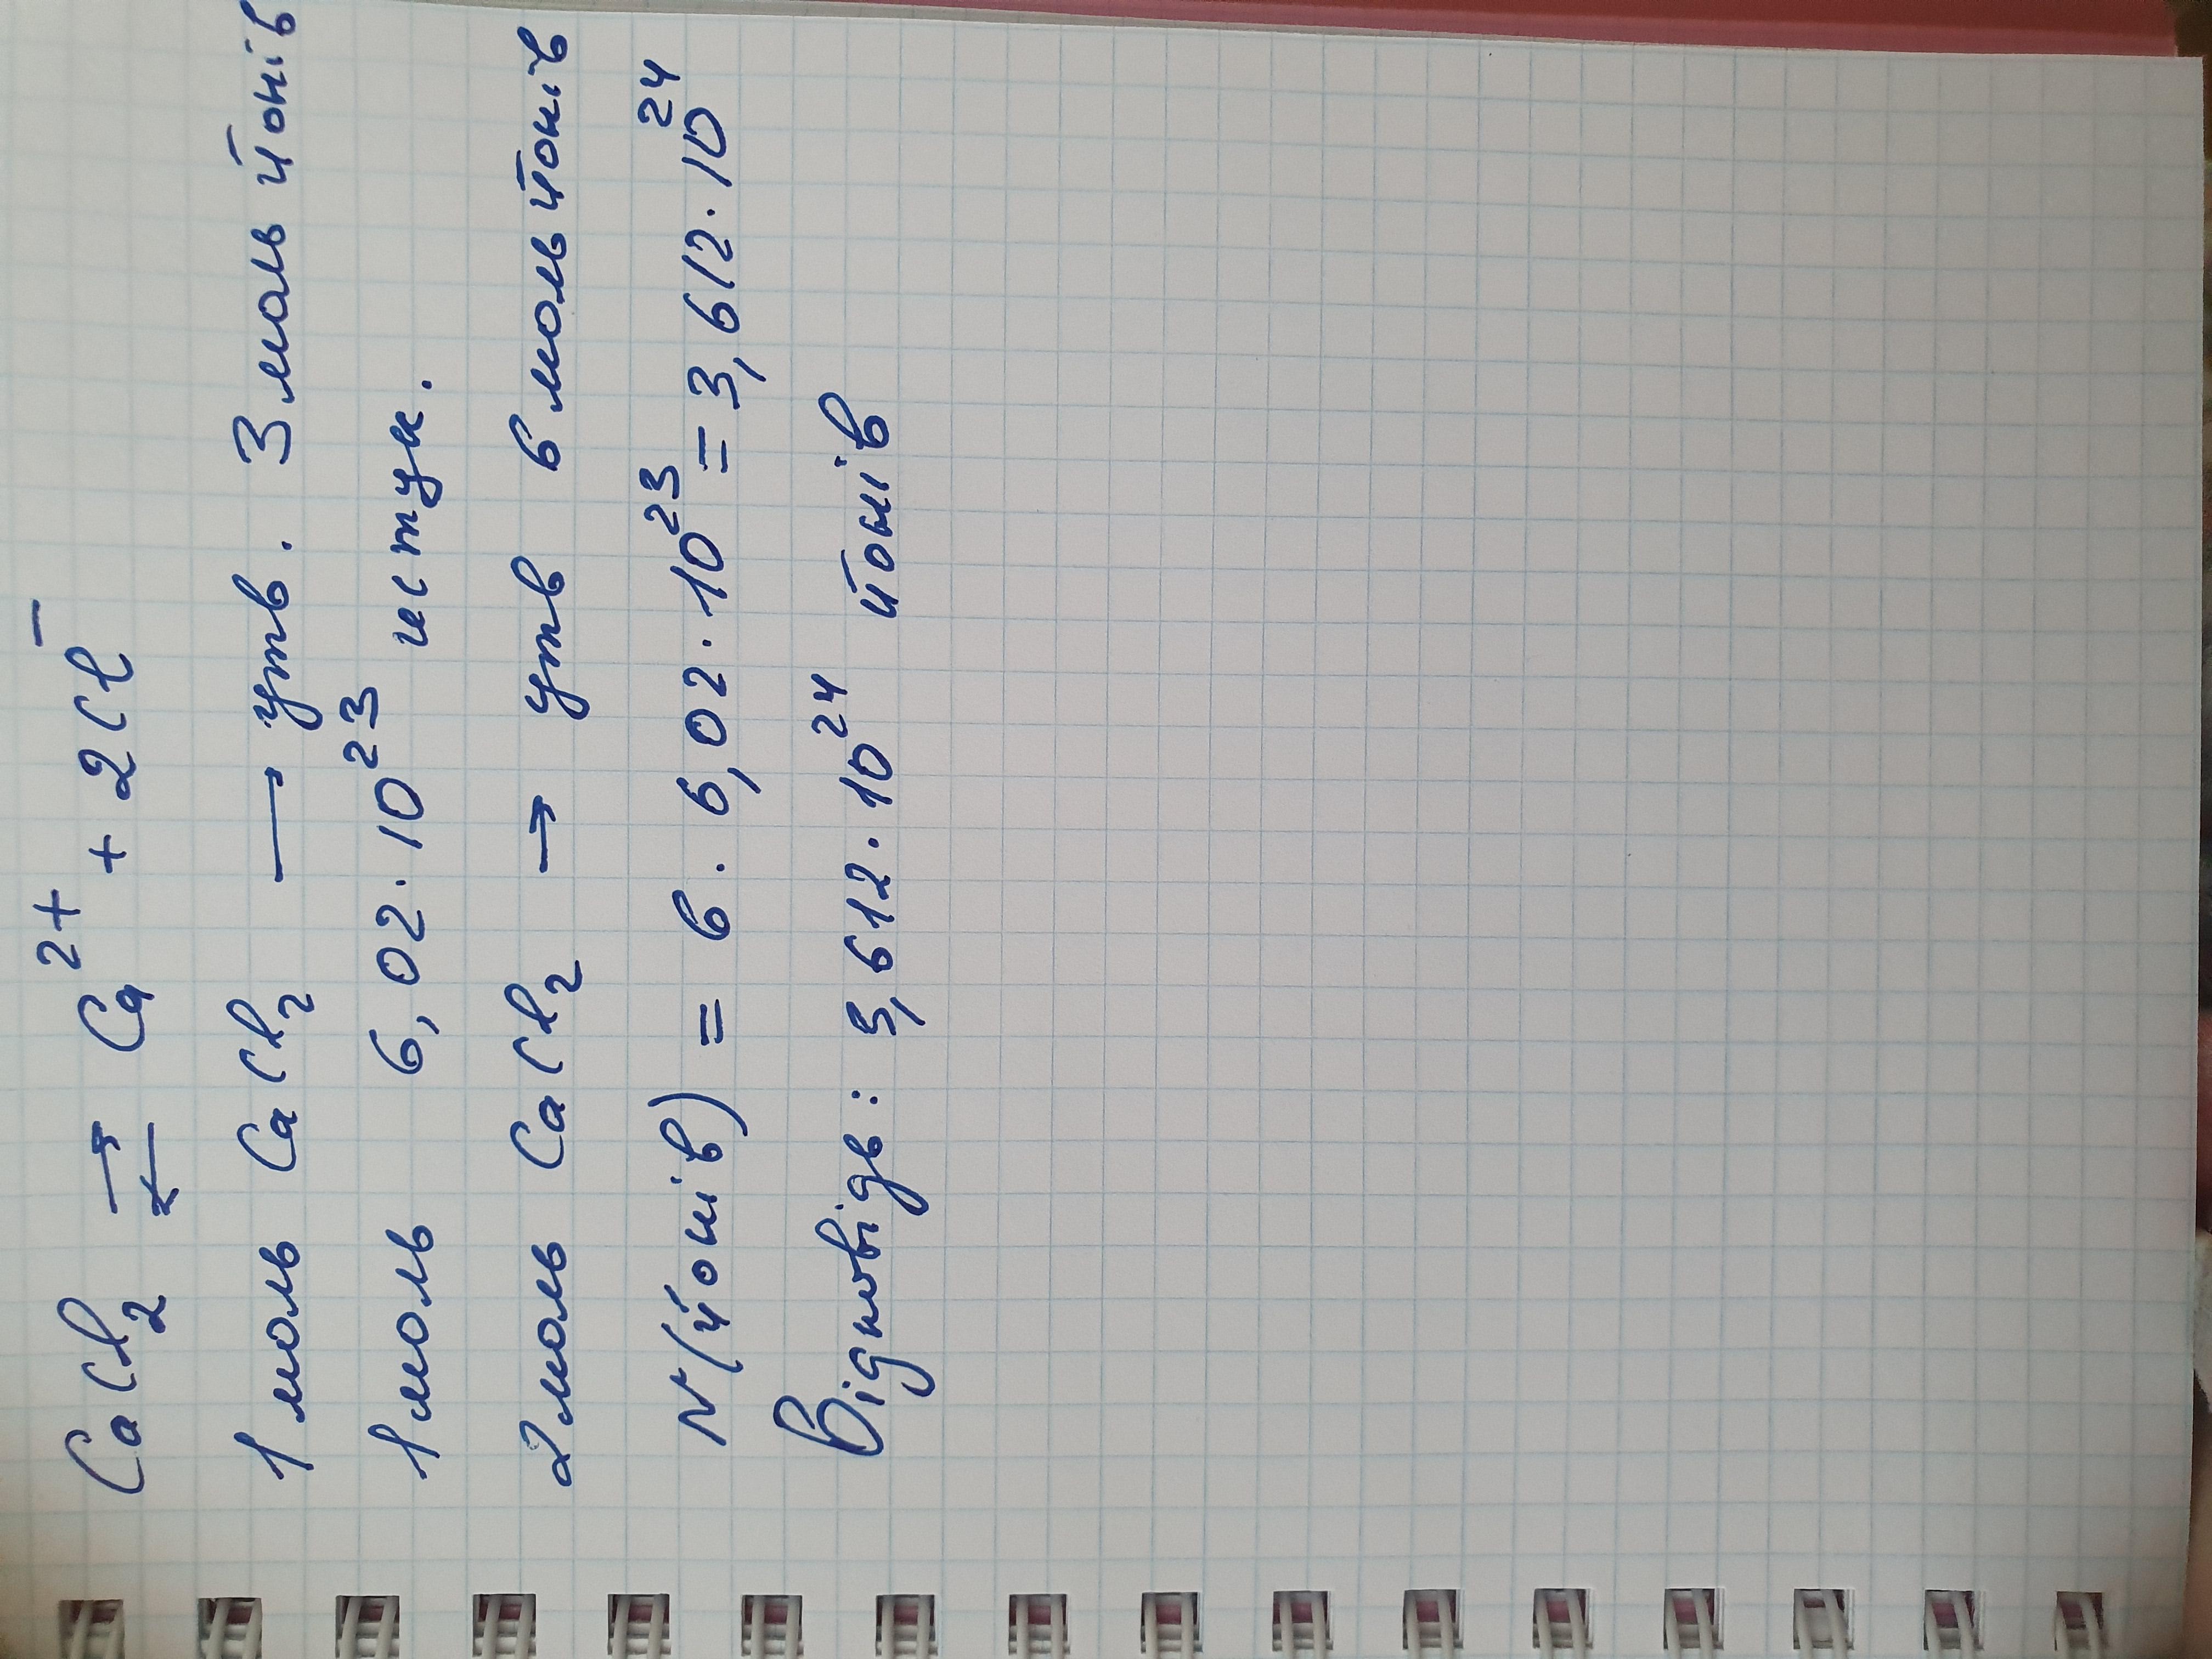 CaCl₂ ⇄ Ca²⁺ + 2Cl⁻
1 моль CaCl₂ → утв. 3 моль йонів
1 моль 6,02·10²³ истук.
2 моль CaCl₂ → утв 6 моль йонів
N(йонів) = 6·6,02·10²³ = 3,612·10²⁴
Відповідь: 3,612·10²⁴ йонів